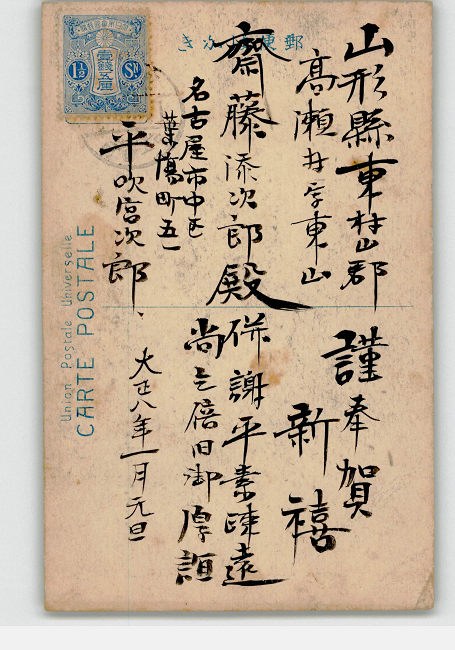 郵便はかき
壹銭五厘
1½ Sn
山形縣東村山郡
高瀬村字東山
齋藤添次郎殿
名古屋市中区
葉場町五一
平吹宮次郎
謹奉賀
新禧
併謝平素疎遠
尚乞倍旧御厚誼
大正八年一月元旦
Union Postale Universelle
CARTE POSTALE